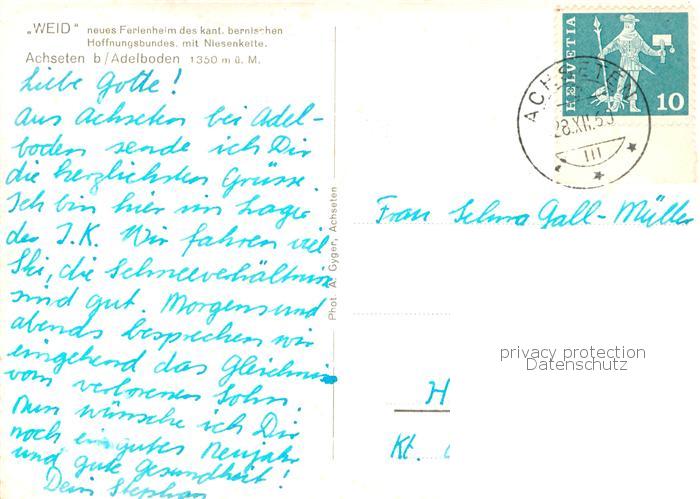 „WEID" neues Ferienheim des kant. bernischen
Hoffnungsbundes, mit Niesenkette.
Achseten b/Adelboden 1350 m ü. M.
Liebe Gotte!
Aus Achseten bei Adel-
boden sende ich Dir
die herzlichsten Grüsse.
Ich bin hier im Lager
des J.K. Wir fahren viel
Ski, die Schneeverhältnisse
sind gut. Morgens und
abends besprechen wir
eingehend das Gleichnis
vom verlorenen Sohn.
Nun wünsche ich Dir
noch ein gutes Neujahr
und gute Gesundheit!
Dein Stephan
Phot. A. Gyger, Achseten
HELVETIA
10
ACHSETEN
28.XII.63
III
Frau Selma Gall-Müller
privacy protection
Datenschutz
H
Kt.